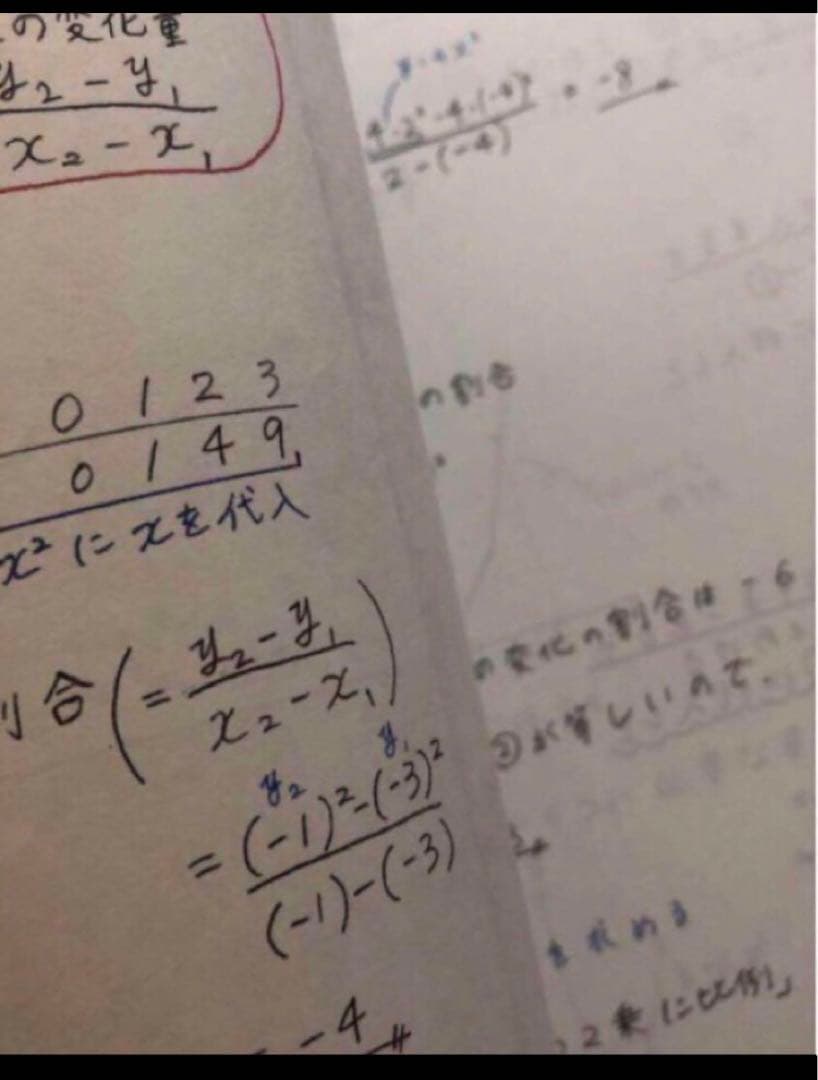 の変化量
y₂ - y₁
x₂ - x₁
0 1 2 3
0 1 4 9
x² に x を代入
割合 ( = y₂ - y₁
x₂ - x₁ )
y₂ y₁
= (-1)² - (-3)²
(-1) - (-3)
-4
4・2² - 4・(-4)² = -8
2 - (-4)
の割合
の変化の割合は -6
②が等しいので、
を求める
2乗に比例」